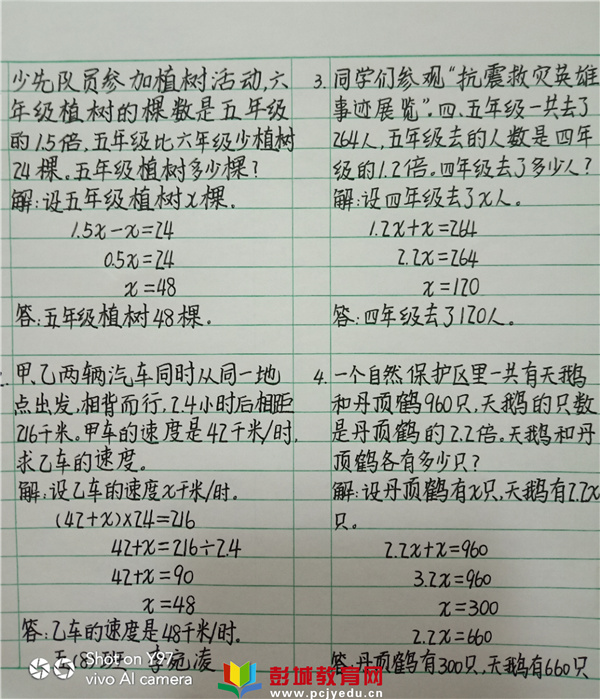 少先队员参加植树活动,六
年级植树的棵数是五年级
的1.5倍,五年级比六年级少植树
24棵。五年级植树多少棵?
解:设五年级植树x棵。
1.5x-x=24
0.5x=24
x=48
答:五年级植树48棵。
2. 甲、乙两辆汽车同时从同一地
点出发,相背而行,2.4小时后相距
216千米。甲车的速度是42千米/时,
求乙车的速度。
解:设乙车的速度x千米/时。
(42+x)×2.4=216
42+x=216÷2.4
42+x=90
x=48
答:乙车的速度是48千米/时.
五(8)班 李宛凌
3. 同学们参观“抗震救灾英雄
事迹展览”。四、五年级一共去了
264人,五年级去的人数是四年
级的1.2倍。四年级去了多少人?
解:设四年级去了x人。
1.2x+x=264
2.2x=264
x=120
答:四年级去了120人。
4. 一个自然保护区里一共有天鹅
和丹顶鹤960只,天鹅的只数
是丹顶鹤的2.2倍。天鹅和丹
顶鹤各有多少只?
解:设丹顶鹤有x只,天鹅有2.2x
只。
2.2x+x=960
3.2x=960
x=300
2.2x=660
答:丹顶鹤有300只,天鹅有660只
Shot on Y97
vivo AI camera
彭城教育网
www.pcjyedu.cn